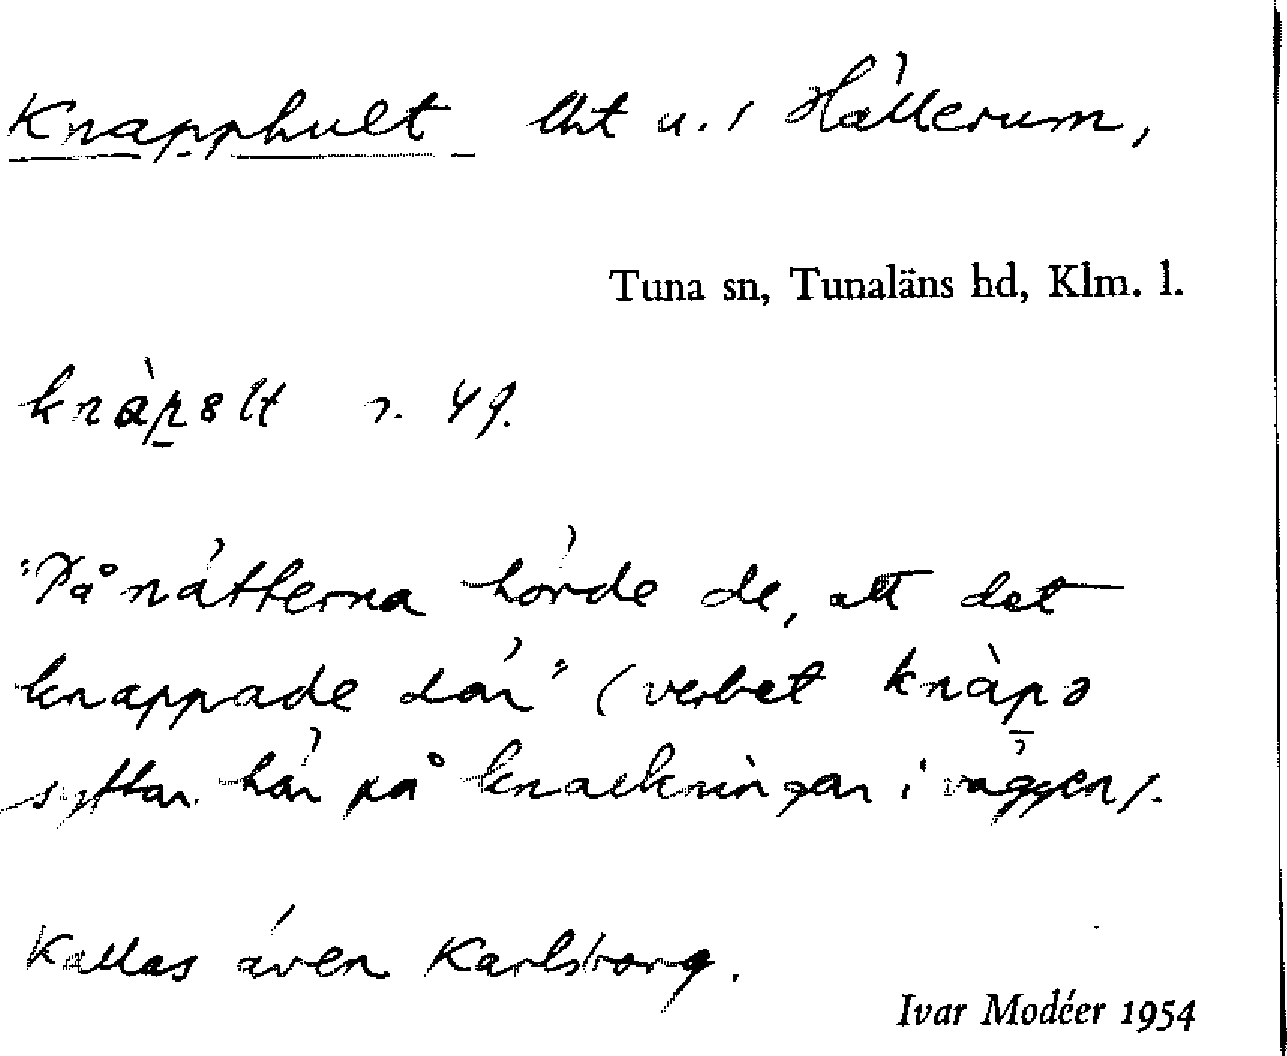 Knapphult lht u. i Hällerum,
Tuna sn, Tunaläns hd, Klm. l.
knàp̲ɞlt n. 49.
"På nätterna hörde de, att det
knappade där" (verbet knàp̲ə
syftar här på knackningar i väggen).
Kallas även Karlsborg.
Ivar Modéer 1954